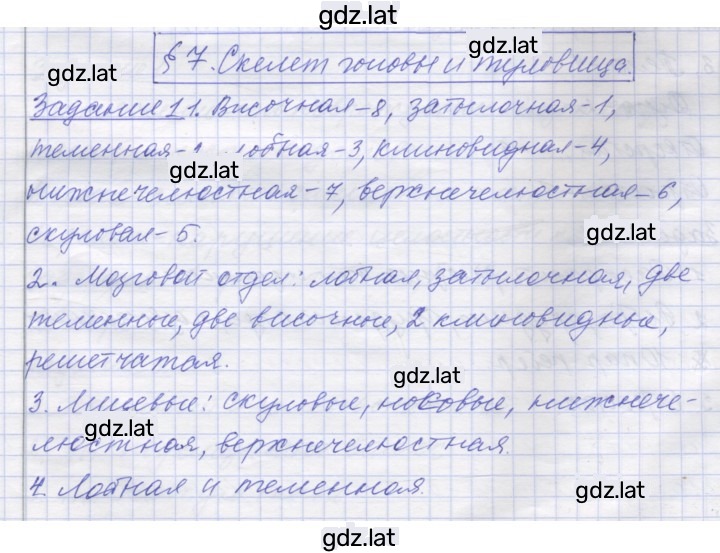 gdz.lat
§ 7. Скелет головы и туловища.
gdz.lat
gdz.lat
Задание 1 1. Височная-8, затылочная-1,
теменная- обная-3, клиновидная-4,
gdz.lat
нижнечелюстная-7, верхнечелюстная-6,
скуловая-5.
gdz.lat
2. Мозговой отдел: лобная, затылочная, две
теменные, две височные, 2 клиновидные,
решетчатая.
gdz.lat
3. Лицевые: скуловые, носовые, нижнече-
люстная, верхнечелюстная.
gdz.lat
4. Лобная и теменная.
gdz.lat
gdz.lat